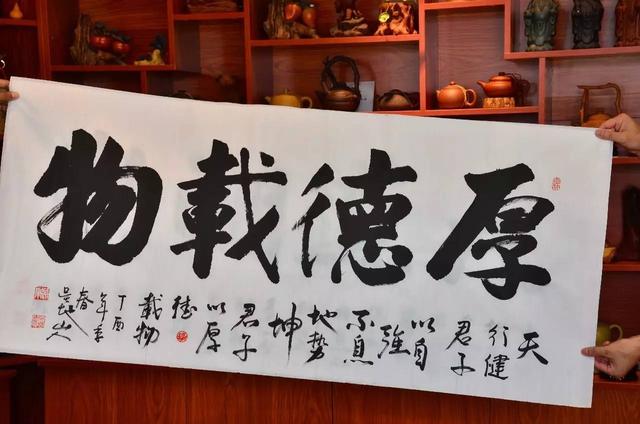 厚德載物
天
行健
君子
以自
強
不息
地势
坤
君子
以厚
德
載物
丁酉
春